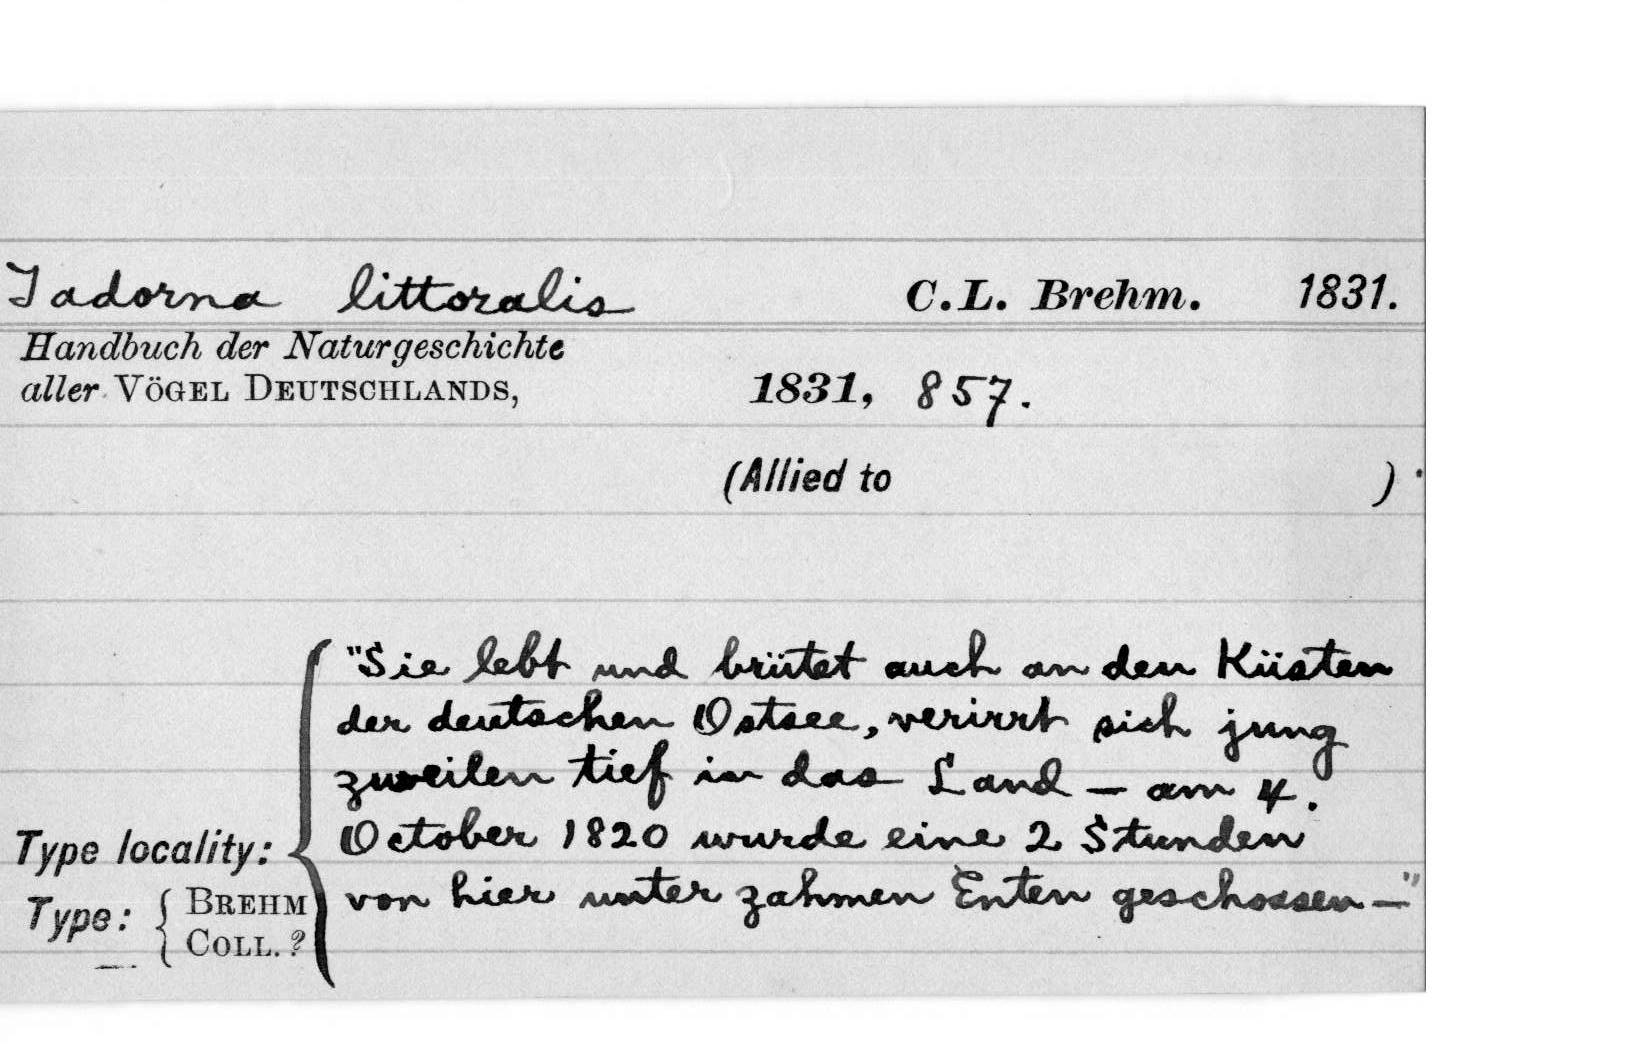 Tadorna littoralis C.L. Brehm. 1831.
Handbuch der Naturgeschichte
aller VÖGEL DEUTSCHLANDS, 1831, 857.
(Allied to ).
"Sie lebt und brütet auch an den Küsten
der deutschen Ostsee, verirrt sich jung
zuweilen tief in das Land – am 4.
Type locality: October 1820 wurde eine 2 Stunden
Type: BREHM COLL. ? von hier unter zahmen Enten geschossen –"